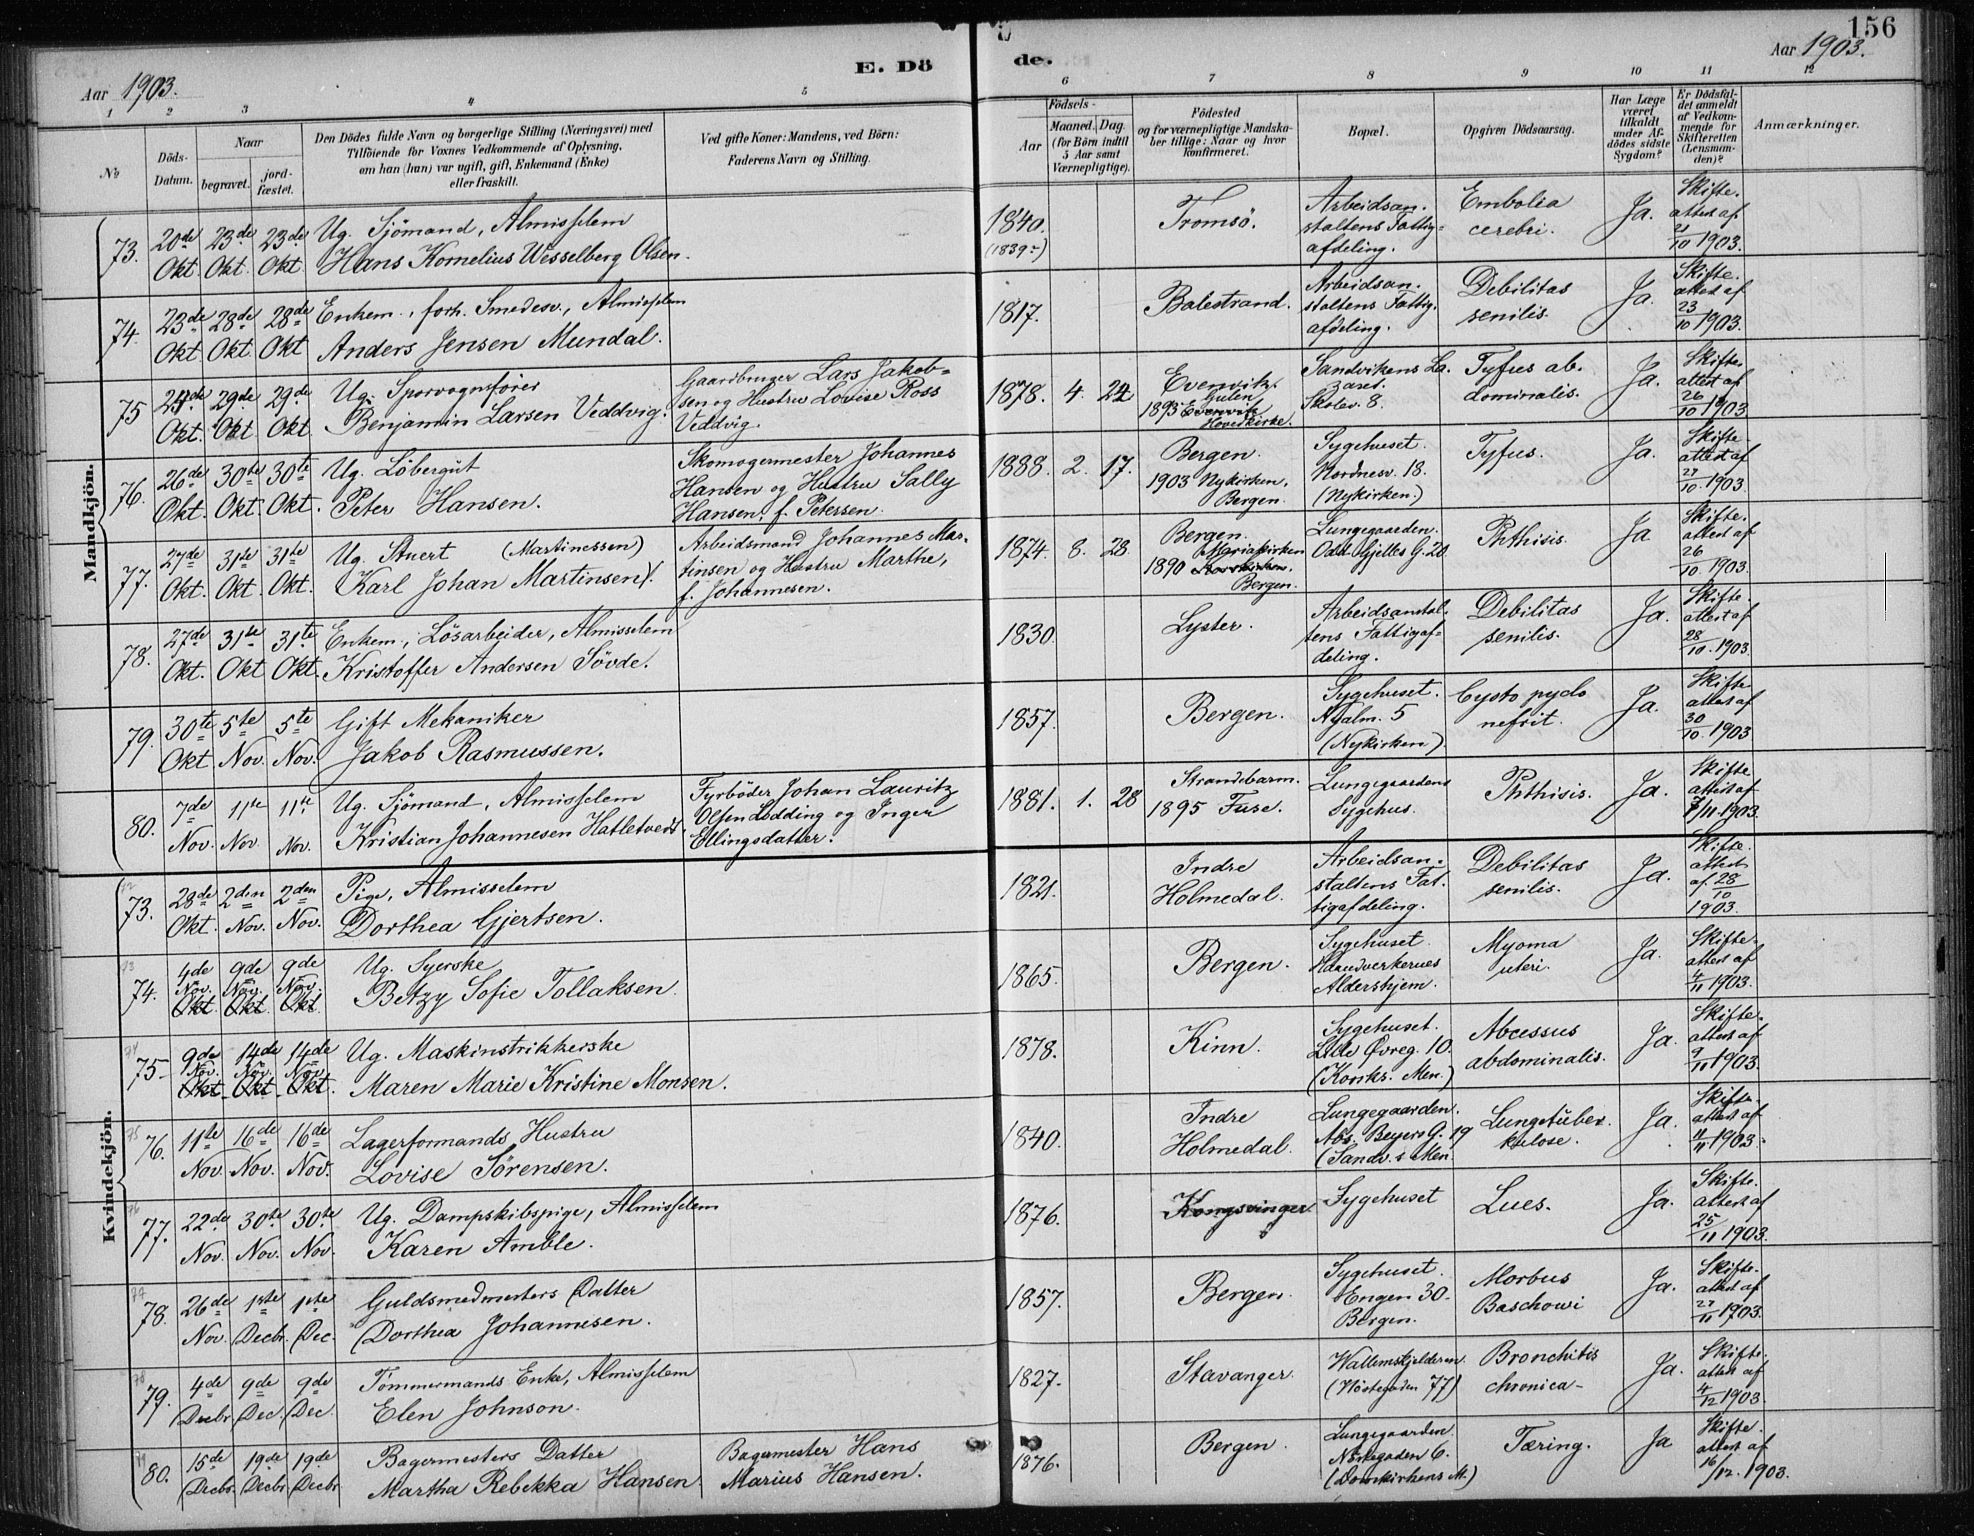 156
Aar 1903. E. Dö de. Aar 1903.
1 2 3 4 5 6 7 8 9 10 11 12
№
Döds-Datum.
Naar begravet. jordfæstet.
Den Dödes fulde Navn og borgerlige Stilling (Næringsvei) med
Tilföiende for Voxnes Vedkommende af Oplysning,
om han (hun) var ugift, gift, Enkemand (Enke)
eller fraskilt.
Ved gifte Koner: Mandens, ved Börn:
Faderens Navn og Stilling.
Födsels-
Aar Maaned. Dag.
(for Börn indtil
5 Aar samt
Værnepligtige).
Födested
og for værnepligtige Mandska-
ber tillige: Naar og hvor
konfirmeret.
Bopæl.
Opgiven Dödsaarsag.
Har Læge
været
tilkaldt
under Af-
dödes sidste
Sygdom?
Er Dödsfal-
det anmeldt
af Vedkom-
mende for
Skifteretten
(Lensman-
den)?
Anmærkninger.
Mandkjön.
73. 20de Okt. 23de Okt. 23de Okt
Ug. Sjömand, Almisselem
Hans Kornelius Wesselberg Olsen.
1840. (1839-)
Tromsö.
Arbeidsan-
staltens Fattig-
afdeling.
Embolia
cerebri.
Ja.
Skifte-
attest af
21/10 1903.
74. 23de Okt. 28de Okt. 28de Okt
Enkem., forh. Smedesv., Almisselem
Anders Jensen Mundal.
1817.
Balestrand.
Arbeidsan-
staltens Fattig-
afdeling.
Debilitas
senilis.
Ja.
Skifte-
attest af
23/10 1903.
75 24de Okt. 29de Okt. 29de Okt.
Ug. Sporvognsfører
Benjamin Larsen Veddvig.
Gaardbruger Lars Jakob-
sen og Hustru Lovise Ross
Veddvig.
1878. 4. 24
Evenvik.
Gulen
1893 Evenvik
Hovedkirke.
Sandvikens La-
zaret.
Skolev. 8.
Tyfus ab-
dominalis.
Ja.
Skifte-
attest af
26/10 1903
76. 26de Okt. 30te Okt. 30te Okt.
Ug. Löbergut
Peter Hansen.
Skomagermester Johannes
Hansen og Hustru Sally
Hansen, f. Petersen.
1888. 2. 17.
Bergen.
1903 Nykirken,
Bergen.
Sygehuset.
Nordnesv. 18.
(Nykirken.)
Tyfus.
Ja.
Skifte-
attest af
27/10 1903.
77. 27de Okt. 31te Okt. 31te Okt.
Ug. Stuert (Martinessen)
Karl Johan Martinsen).
Arbeidsmand Johannes Mar-
tinsen og Hustru Marthe,
f. Johannesen.
1874. 8. 28
Bergen.
Mariakirken
1890
Bergen.
Lungegaarden.
Odd Gjelles G. 20
Phthisis.
Ja
Skifte-
attest af
26/10 1903.
78. 27de Okt. 31te Okt 31te Okt.
Enkem., Lösarbeider, Almisselem
Kristoffer Andersen Sövde.
1830.
Lyster.
Arbeidsanstal-
tens Fattigaf-
deling.
Debilitas
senilis.
Ja.
Skifte-
attest af
28/10. 1903.
79. 30te Okt. 5te Nov. 5te Nov.
Gift Mekaniker
Jakob Rasmussen.
1857.
Bergen.
Sygehuset.
Nyalm. 5
(Nykirken).
Cysto pyelo
nefrit.
Ja.
Skifte-
attest af
30/10. 1903
80. 7de Nov. 11te Nov 11te Nov.
Ug. Sjömand, Almisselem
Kristian Johannesen Hatletvedt.
Fyrböder Johan Lauritz
Olsen Lodding og Inger
Ellingsdatter.
1881. 1. 28
Strandebarm.
1895 Fuse.
Lungegaardens
Sygehus.
Phthisis.
Ja.
Skifte
attest af
7/11 1903.
Kvindekjön.
73. 28de Okt. 2den Nov. 2den Nov.
Pige, Almisselem
Dorthea Gjertsen.
1821.
Indre
Holmedal.
Arbeidsan-
staltens Fat-
tigafdeling.
Debilitas
senilis.
Ja.
Skifte-
attest
af 28/10
1903.
74. 4de Nov. Okt. 9de Nov. Okt. 9de Nov. Okt.
Ug. Syerske
Betzy Sofie Tollaksen.
1865.
Bergen.
Sygehuset.
Haandverkernes
Aldershjem.
Myoma
uteri.
Ja.
Skifte-
attest af
4/11 1903.
75 9de Nov. Okt. 14de Nov. Okt. 14de Nov. Okt.
Ug. Maskinstrikkerske
Maren Marie Kristine Monsen.
1878.
Kinn.
Sygehuset.
Lille Øvreg. 10.
(Korsk. Men.)
Abcessus
abdominalis.
Ja.
Skifte-
attest af
9/11 1903.
76. 11te Nov. 16de Nov. 16de Nov.
Lagerformands Hustru
Lovise Sörensen.
1840.
Indre
Holmedal.
Lungegaarden.
Abs. Beyers G. 19
(Sandv.s Men.
Lungetuber-
kulose.
Ja.
Skifte-
attest af
11/11 1903.
77. 22de Nov. 30te Nov. 30te Nov.
Ug. Dampskibspige, Almisselem
Karen Amble.
1876.
Kongsvinger
Sygehuset
Lues.
Ja.
Skifte-
attest af
25/11 1903.
78. 26de Nov. 1ste Decbr. 1ste Dec.
Guldsmedmesters Datter
Dorthea Johannesen.
1857.
Bergen.
Sygehuset.
Engen 30.
Bergen.
Morbus
Baschowi
Ja.
Skifte-
attest af
27/11 1903.
79. 4de Decbr 9de Dec. 9de Dec.
Tömmermands Enke, Almisselem
Elen Johnson.
1827.
Stavanger.
Wallemskjelderen.
(Nöstegaden 77)
Bronchitis
chronica-
Ja.
Skifte-
attest af
4/12 1903.
80. 15de Decbr. 19de Decbr 19de Decbr
Bagermesters Datter
Martha Rebekka Hansen
Bagermester Hans
Marius Hansen.
1876.
Bergen.
Lungegaarden.
Nöstegaden 6.
(Domkirkens M.)
Tæring.
Ja
Skifte
attest af
16/12. 1903.